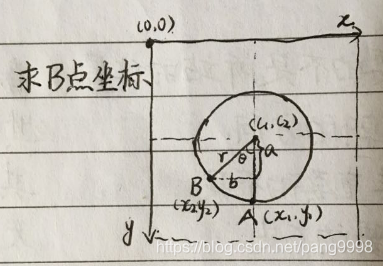 (0,0)
x
求B点坐标
(c₁,c₂)
r
θ
a
B
b
(x₂y₂)
A
(x₁,y₁)
y
https://blog.csdn.net/pang9998